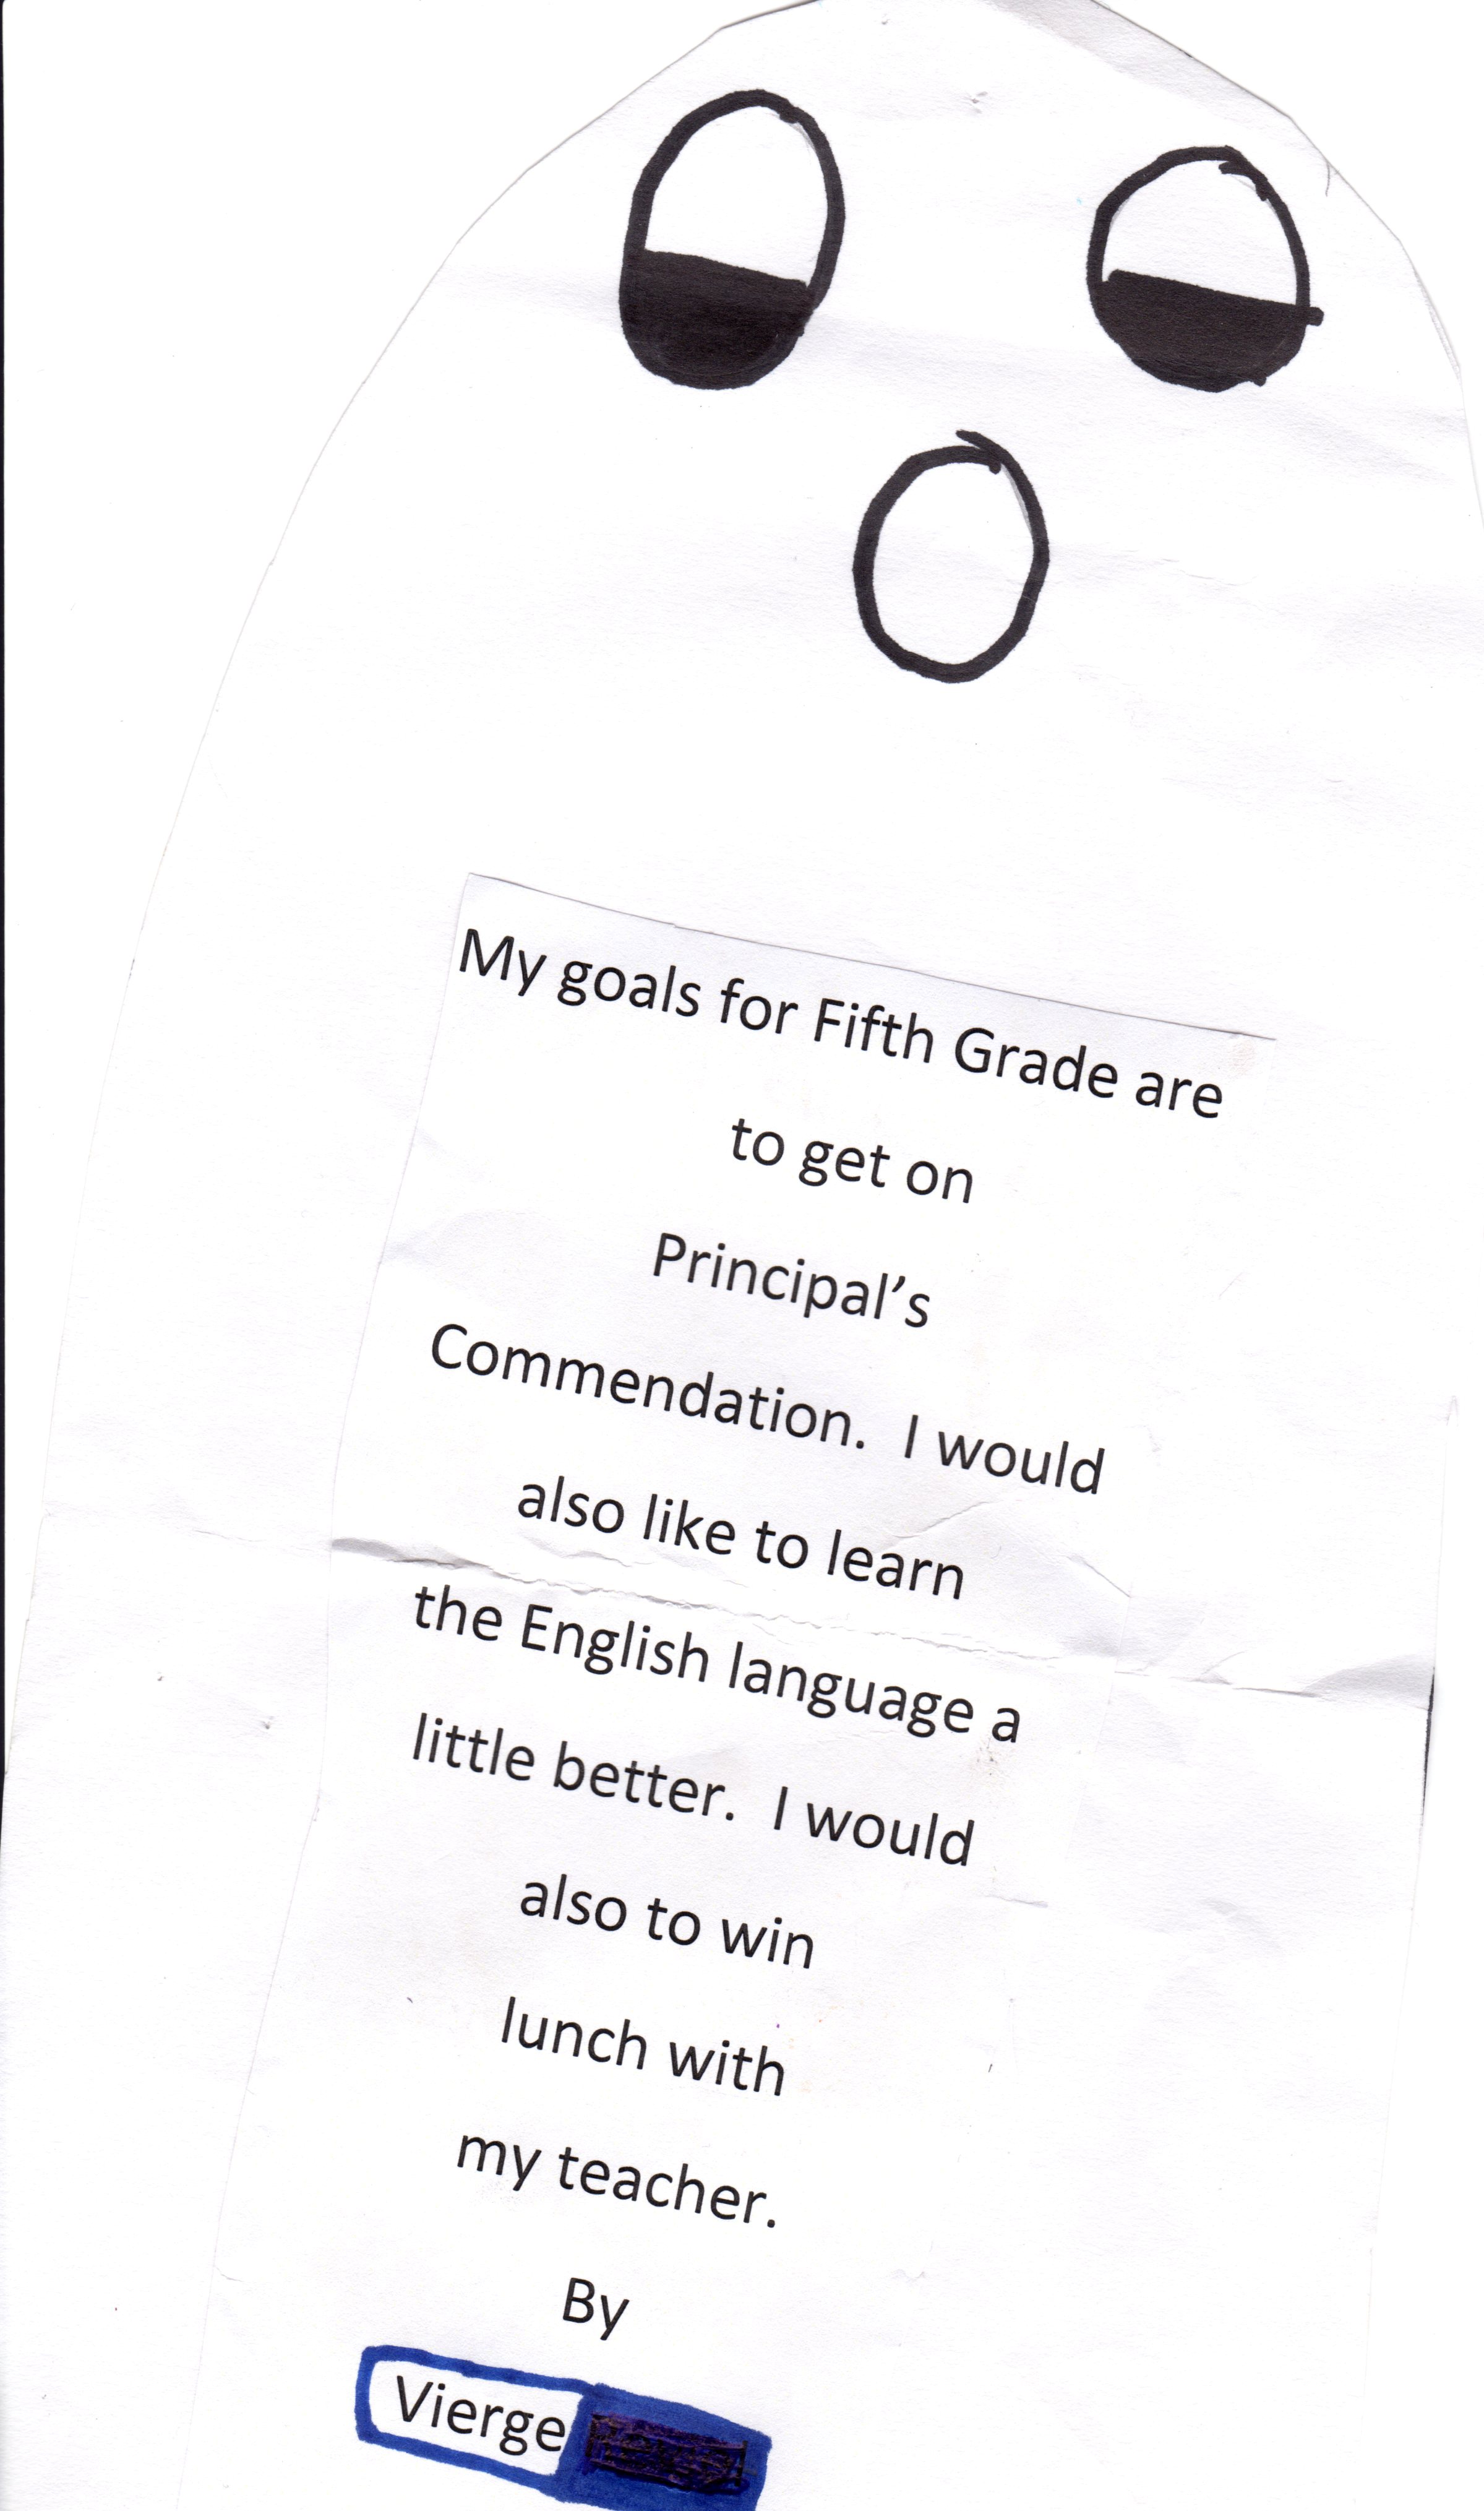 My goals for Fifth Grade are
to get on
Principal’s
Commendation.  I would
also like to learn
the English language a
little better.  I would
also to win
lunch with
my teacher.
By
Vierge